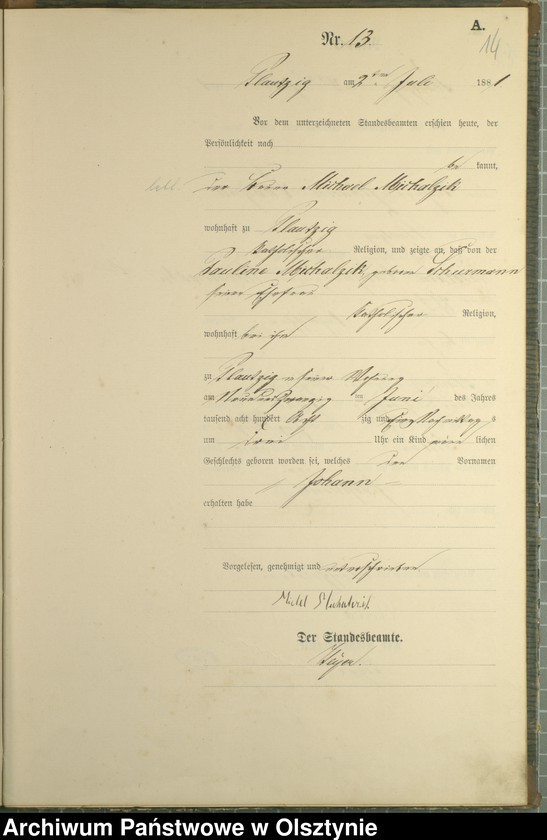 A.
14
Nr. 13.
Plautzig am 2ten Juli 1881
Vor dem unterzeichneten Standesbeamten erschien heute, der
Persönlichkeit nach
be kannt,
der Michael Michalzik
wohnhaft zu Plautzig
katholischer Religion, und zeigte an, daß von der
Pauline Michalzik, geborene Schurmann
seiner Ehefrau
katholischer Religion,
wohnhaft bei ihm
zu Plautzig in seiner Wohnung
am Neunundzwanzig ten Juni des Jahres
tausend acht hundert Acht zig und Eins Vormittags
um drei Uhr ein Kind männ lichen
Geschlechts geboren worden sei, welches den Vornamen
Johann
erhalten habe
Vorgelesen, genehmigt und unterschrieben
Der Standesbeamte.
Archiwum Państwowe w Olsztynie